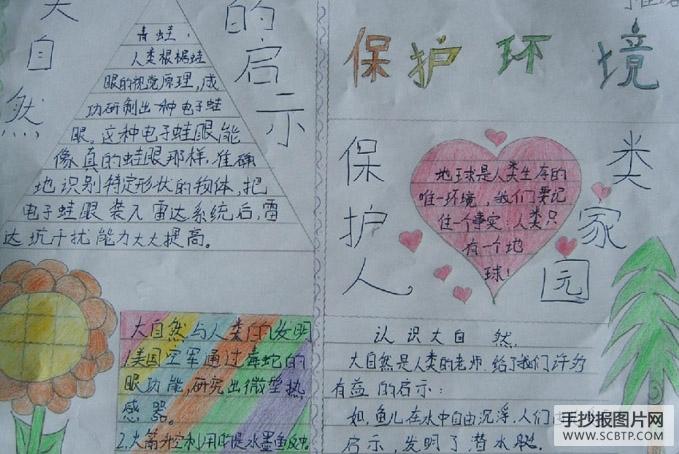 大自然
的启示
青蛙：
人类根据蛙
眼的视觉原理，成
功研制出一种电子蛙
眼。这种电子蛙眼能
像真的蛙眼那样，准确
地识别特定形状的物体，把
电子蛙眼装入雷达系统后，雷
达抗干扰能力大大提高。
大自然与人类的发明
1.美国空军通过毒蛇的
眼功能，研究出微型热
感器。
2.火箭升空利用的是水墨鱼反冲
保护环境
保护人
类家园
地球是人类生存的
唯一环境，我们要记
住一个事实：人类只
有一个地
球！
认识大自然
大自然是人类的老师，给了我们许多
有益的启示：
如，鱼儿在水中自由沉浮，人们
启示，发明了潜水艇。
手抄报图片网
WWW.SCBTP.COM